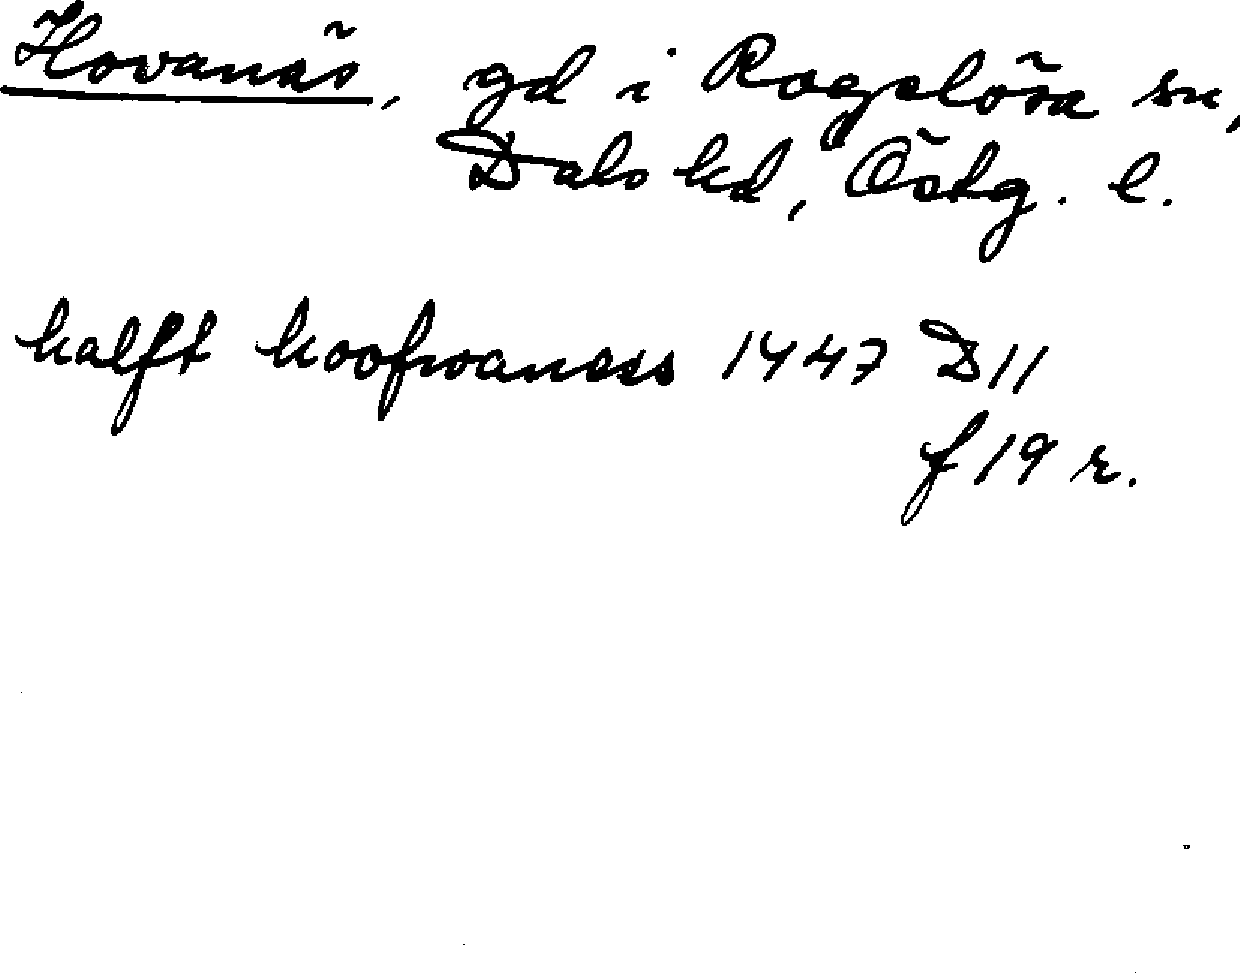 Hovanäs, gd i Rogslösa sn,
Dals hd, Östg. l.
halft hoofwanæss 1447 D11
f 19 r.